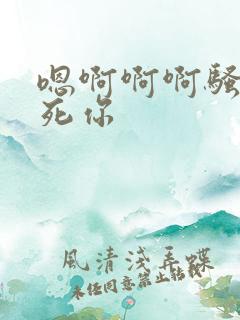 嗯啊啊啊骚
死你
風清淺弄蝶
未经同意禁止转载